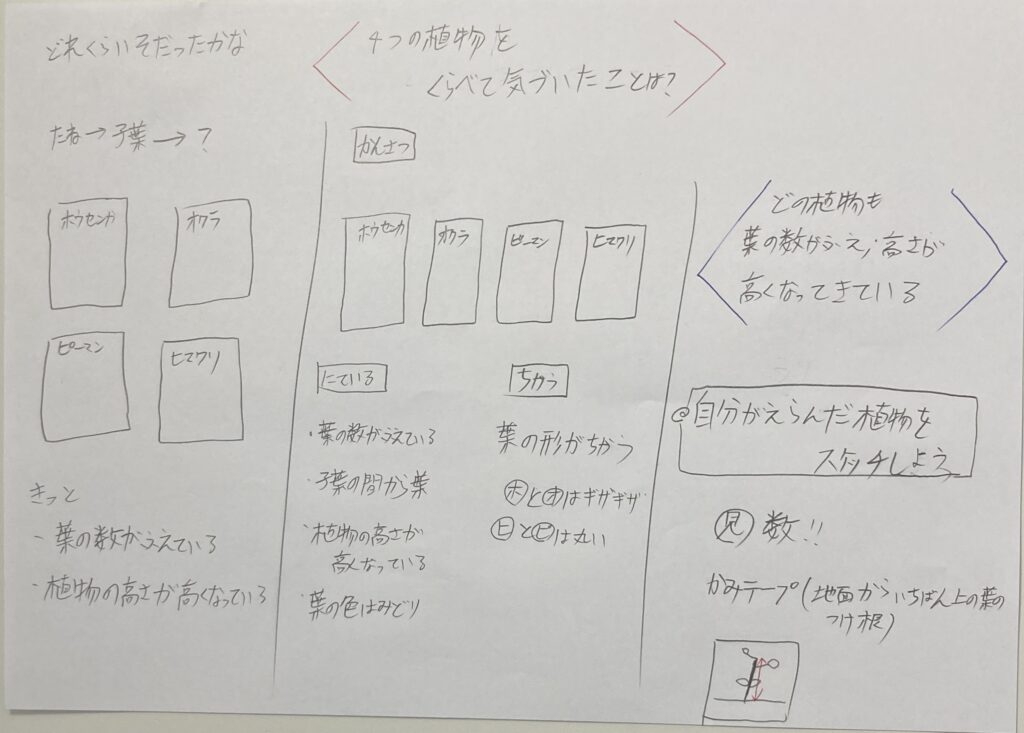 どれくらいそだったかな
たね→子葉→?
ホウセンカ
オクラ
ピーマン
ヒマワリ
きっと
・葉の数がふえている
・植物の高さが高くなっている
4つの植物を
くらべて気づいたことは?
かんさつ
ホウセンカ
オクラ
ピーマン
ヒマワリ
にている
・葉の数がふえている
・子葉の間から葉
・植物の高さが
高くなっている
・葉の色はみどり
ちがう
葉の形がちがう
ホとオはギザギザ
ヒとピは丸い
どの植物も
葉の数がふえ,高さが
高くなってきている
◎自分がえらんだ植物を
スケッチしよう
見 数!!
かみテープ(地面からいちばん上の葉の
つけ根)